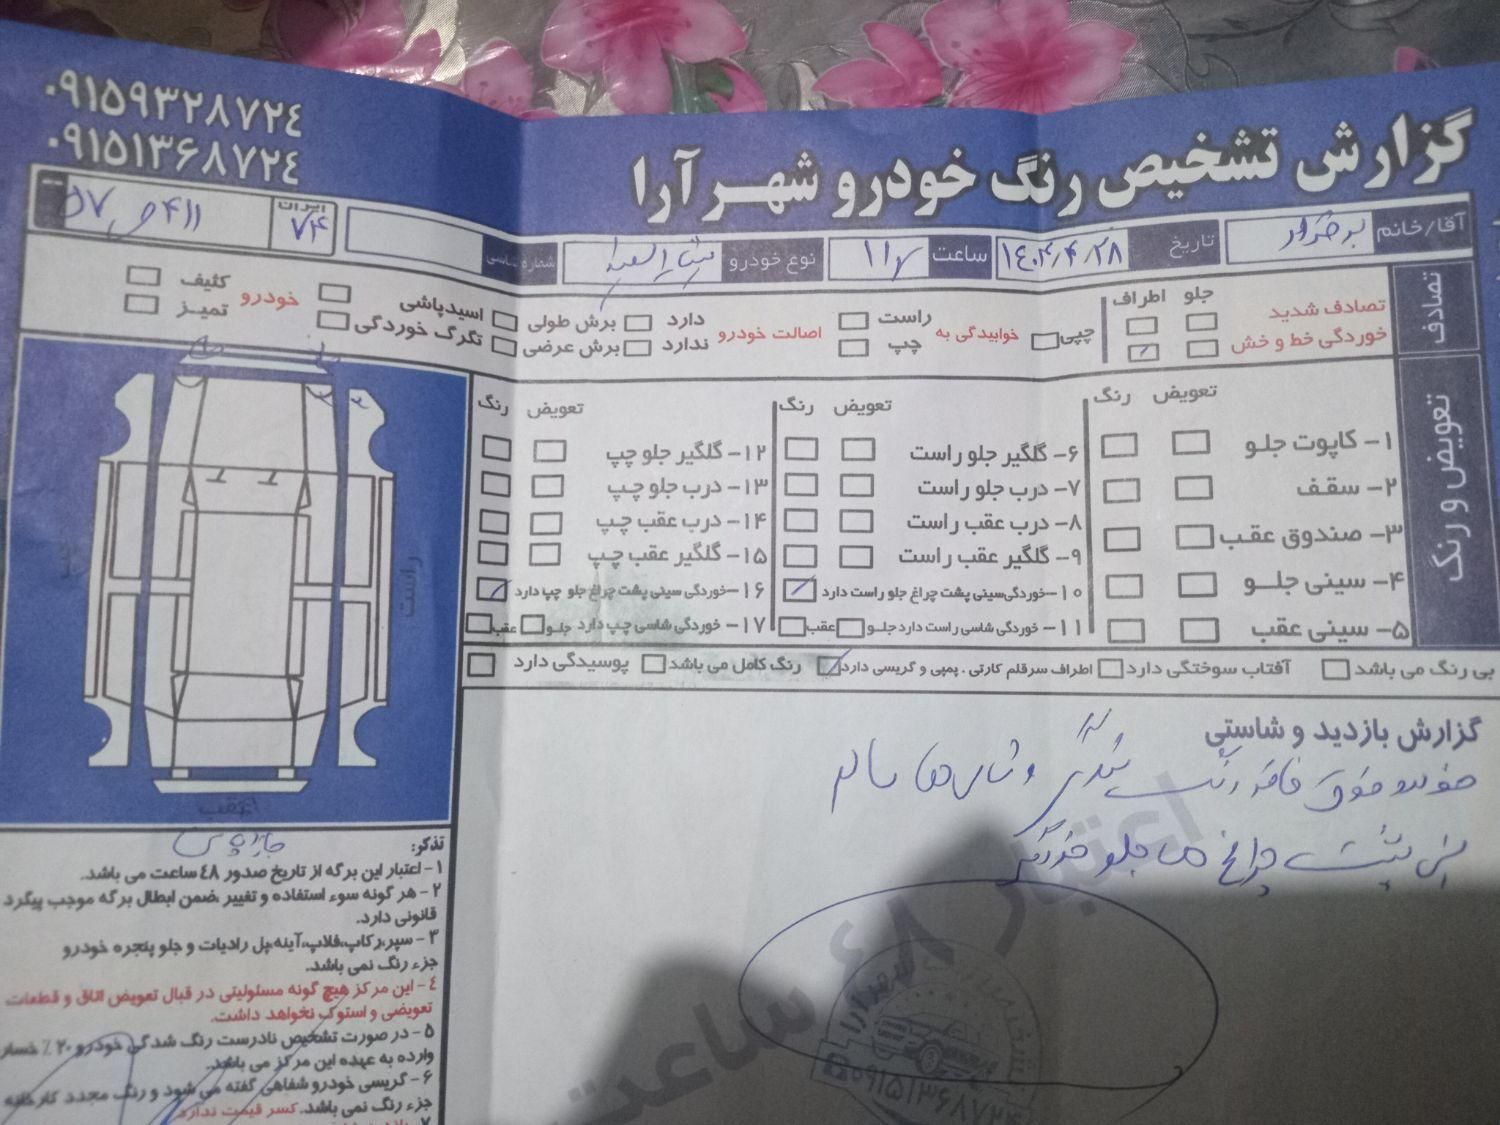 گزارش تشخیص رنگ خودرو شهر آرا
۰۹۱۵۹۳۲۸۷۲٤
۰۹۱۵۱۳۶۸۷۲٤
آقا/خانم
تاریخ ۱٤۰۴/۴/۲۸
ساعت ۱۱
نوع خودرو
شماره شاسی
ایران ۷۴
۴۱۱ ص ۵۷
تصادف
تصادف شدید
خوردگی خط و خش
جلو اطراف
چپی
خوابیدگی به
راست
چپ
اصالت خودرو
دارد
ندارد
برش طولی
برش عرضی
اسیدپاشی
تگرگ خوردگی
خودرو
کثیف
تمیز
تعویض و رنگ
تعویض رنگ
۱- کاپوت جلو
۲- سقف
۳- صندوق عقب
۴- سینی جلو
۵- سینی عقب
تعویض رنگ
۶- گلگیر جلو راست
۷- درب جلو راست
۸- درب عقب راست
۹- گلگیر عقب راست
۱۰- خوردگی سینی پشت چراغ جلو راست دارد
۱۱- خوردگی شاسی راست دارد جلو عقب
تعویض رنگ
۱۲- گلگیر جلو چپ
۱۳- درب جلو چپ
۱۴- درب عقب چپ
۱۵- گلگیر عقب چپ
۱۶- خوردگی سینی پشت چراغ جلو چپ دارد
۱۷- خوردگی شاسی چپ دارد جلو عقب
بی رنگ می باشد
آفتاب سوختگی دارد
اطراف سرقلم کارتی . پمپی و گریسی دارد
رنگ کامل می باشد
پوسیدگی دارد
راست
عقب
گزارش بازدید و شاستی
خودرو فوق فاقد رنگ شدگی و شاسی ها سالم
پشت چراغ ها جلو خوردگی
اعتبار ۴۸ ساعت
شهر آرا
۰۹۱۵۱۳۶۸۷۲٤
تذکر:
۱- اعتبار این برگه از تاریخ صدور ۴۸ ساعت می باشد.
۲- هر گونه سوء استفاده و تغییر ،ضمن ابطال برگه موجب پیگرد
قانونی دارد.
۳- سپر،رکاب،فلاپ،آینه،پل رادیات و جلو پنجره خودرو
جزء رنگ نمی باشد.
۴- این مرکز هیچ گونه مسئولیتی در قبال تعویض اتاق و قطعات
تعویضی و استوک نخواهد داشت.
۵- در صورت تشخیص نادرست رنگ شدگی خودرو ۲۰٪ خسار
وارده به عهده این مرکز می باشد.
۶- گریسی خودرو شفاهی گفته می شود و رنگ مجدد کارخانه
جزء رنگ نمی باشد. کسر قیمت ندارد